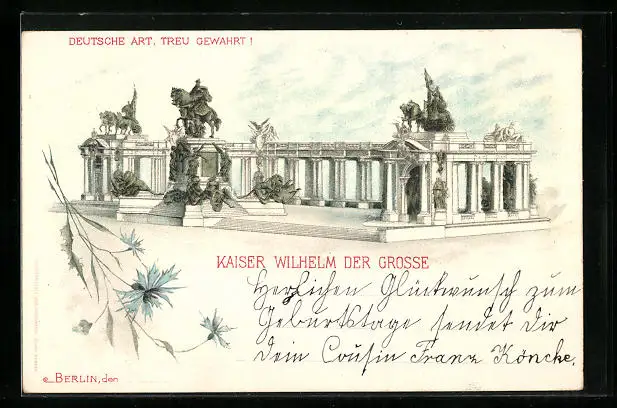 DEUTSCHE ART, TREU GEWAHRT!
KAISER WILHELM DER GROSSE
Herzlichen Glückwunsch zum
Geburtstage sendet Dir
Dein Cousin Franz Köncke.
BERLIN, den